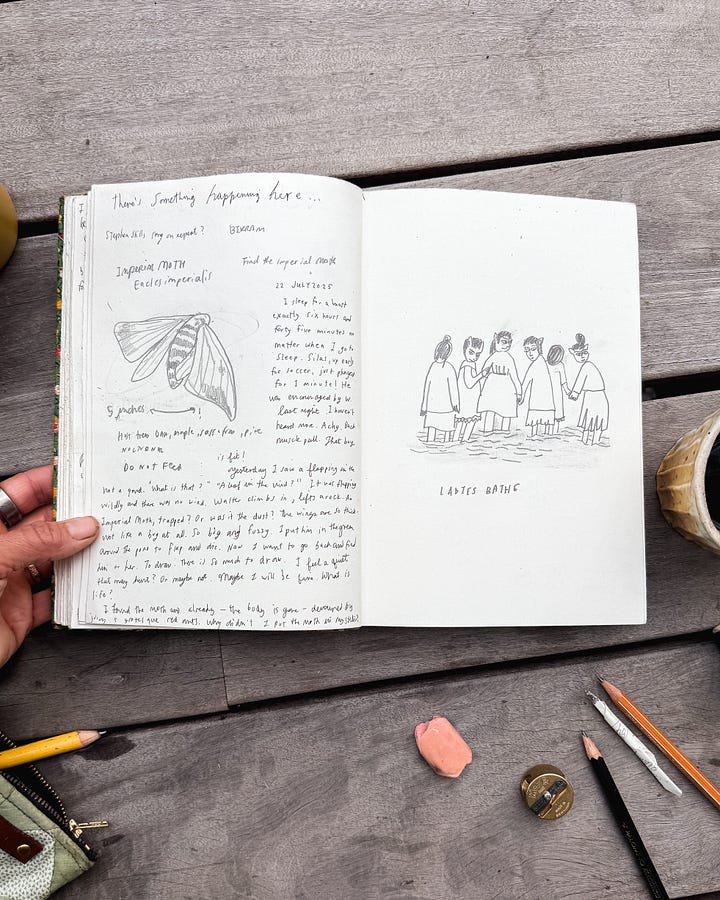 there's Something happening here ...
Stephen Stills song on repeat?
BIKRAM
Imperial MOTH
Eacles imperialis
Find the imperial moth
22 JULY 2025
I sleep for almost
exactly six hours and
forty five minutes no
matter when I go to
sleep. Silas, up early
for soccer, just played
for 1 minute! He
was encouraged by W.
last night. I haven't
heard more. Achy back
muscle pull. That boy
is fit!
5 inches
Host trees oak, maple, sassafras, pine
NOCTURNAL
DO NOT FEED
yesterday I saw a flapping in the
not a good. "What is that?" "A leaf in the wind?" It was flapping
wildly and there was no wind. Walter climbs in, lifts a rock. An
Imperial Moth, trapped? Or was it the dust? The wings are so thick
not like a bug at all. So big and fuzzy. I put him in the green
around the pond to flap and die. Now I want to go back and find
him or her. To draw. There is so much to draw. I feel a guilt
that may haunt? Or maybe not. Maybe I will be fine. What is
life?
I found the moth and already – the body is gone – devoured by
grotesque red ants. Why didn't I put the moth in my
LADIES BATHE